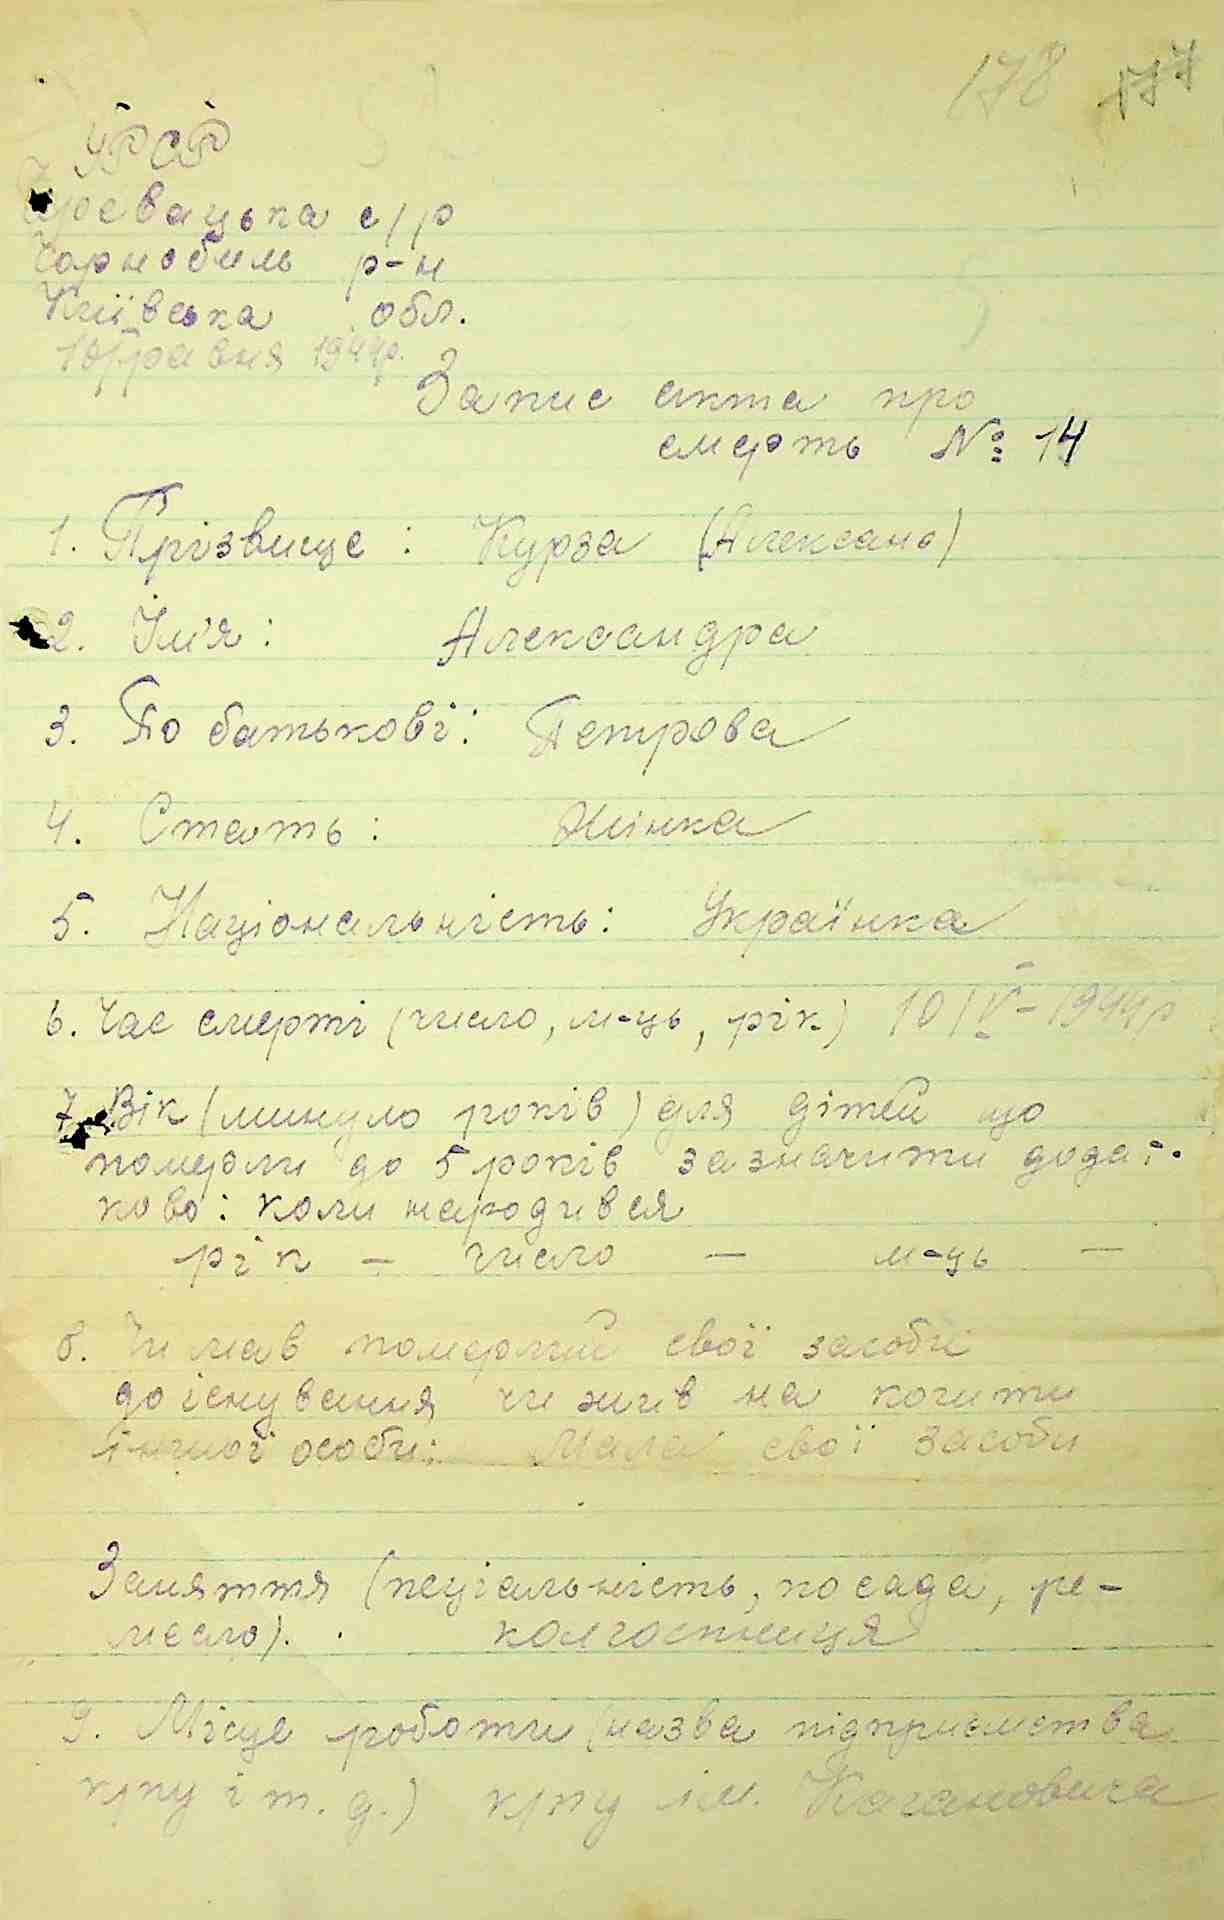 178 177
УРСР
Черевацька с/р
Чорнобиль р-н
Київська обл.
10/травня 1944р.
Запис акта про
смерть № 14
1. Прізвище : Курза (Алексано)
2. Ім'я : Александра
3. По батькові : Петрова
4. Стать : Жінка
5. Національність : Українка
6. Час смерті (число, м-ць, рік) 10 IV - 1944р
7. Вік (минуло років) для дітей що
померли до 5 років зазначити додат-
ково : коли народився
рік – число – м-ць –
8. Чи мав померлий свої засоби
до існування чи жив на кошти
іншої особи: Мала свої засоби
Заняття (пеціальність, посада, ре-
месло). колгоспниця
9. Місце роботи (назва підприємства
к/пу і т. д.) к/пу ім. Кагановича